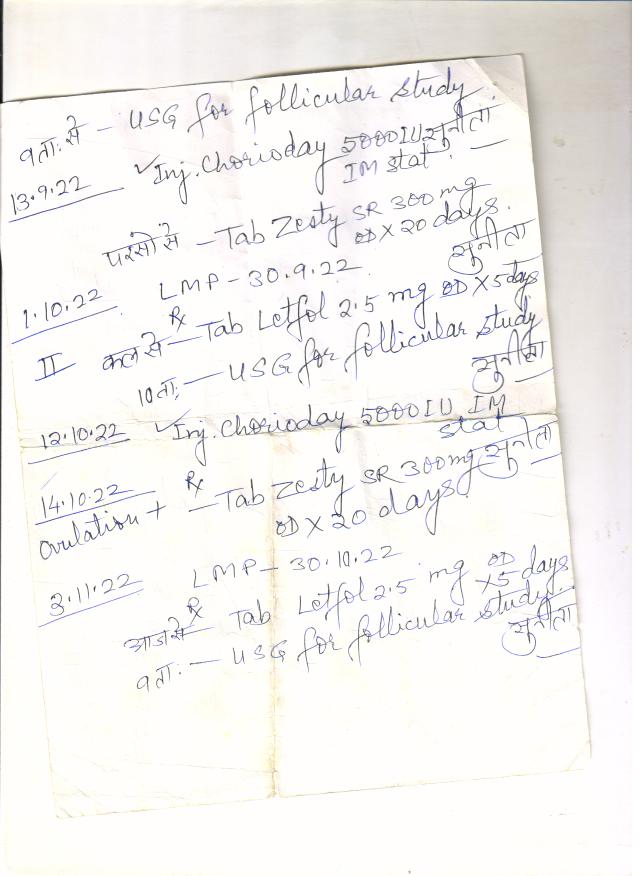 9 ता: से - USG for follicular study.
13.9.22 ✓ Inj. Chorioday 5000 IU सुनीता
IM stat.
परसों से - Tab Zesty SR 300 mg
OD X 20 days.
1.10.22 LMP - 30.9.22. सुनीता
II कल से Rx - Tab Letfol 2.5 mg OD X 5 days
10 ता: - USG for follicular study
सुनीता
12.10.22 ✓ Inj. Chorioday 5000 IU IM
stat
14.10.22 Rx - Tab Zesty SR 300 mg सुनीता
Ovulation + OD X 20 days.
3.11.22 LMP - 30.10.22
आज से Rx Tab Letfol 2.5 mg OD X5 days
9 ता: - USG for follicular study.
सुनीता